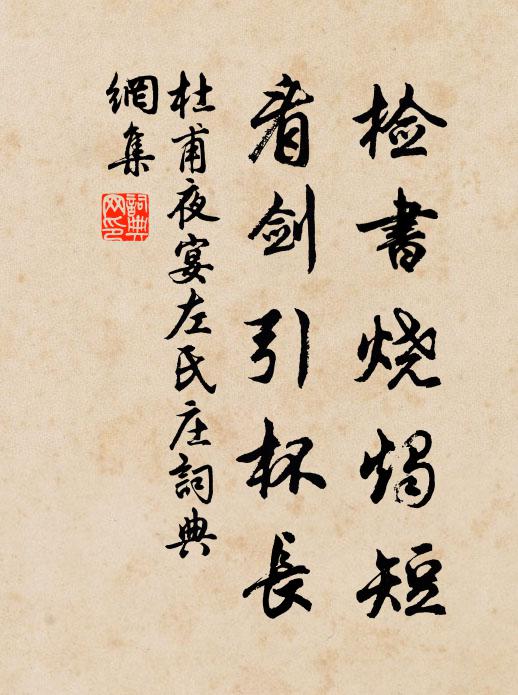 检書烧燭短
看剑引杯長
杜甫夜宴左氏庄詞典
網集
詞典
网印